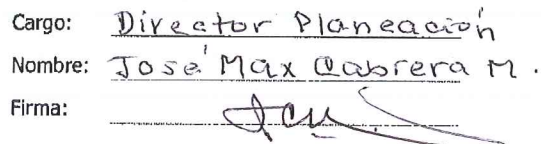 Cargo: Director Planeación
Nombre: José Max Cabrera M.
Firma: